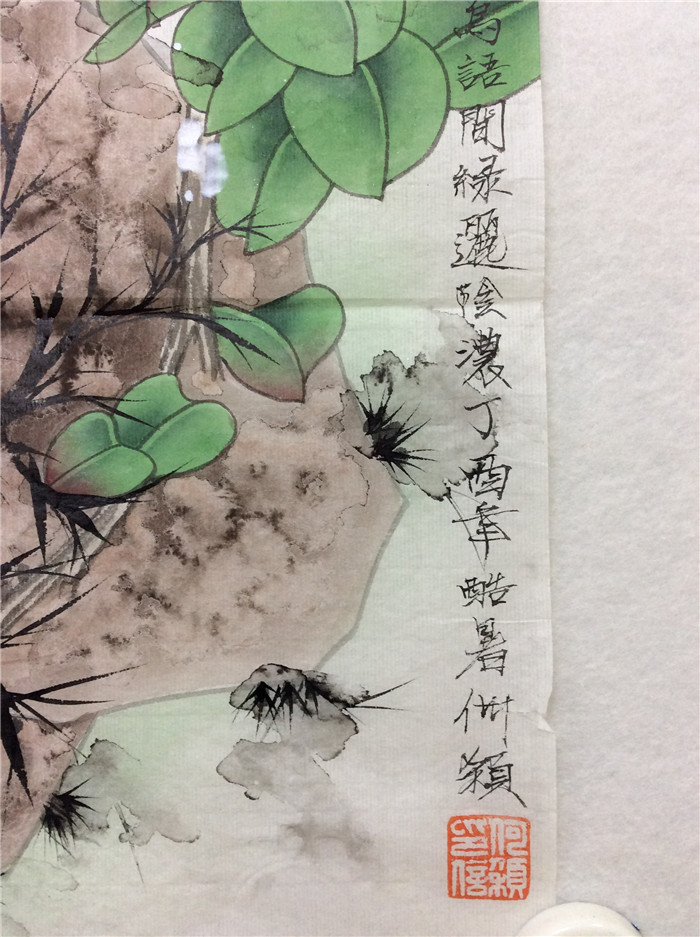 鳥語間綠邐陰濃丁酉年酷暑何穎
何穎
印信